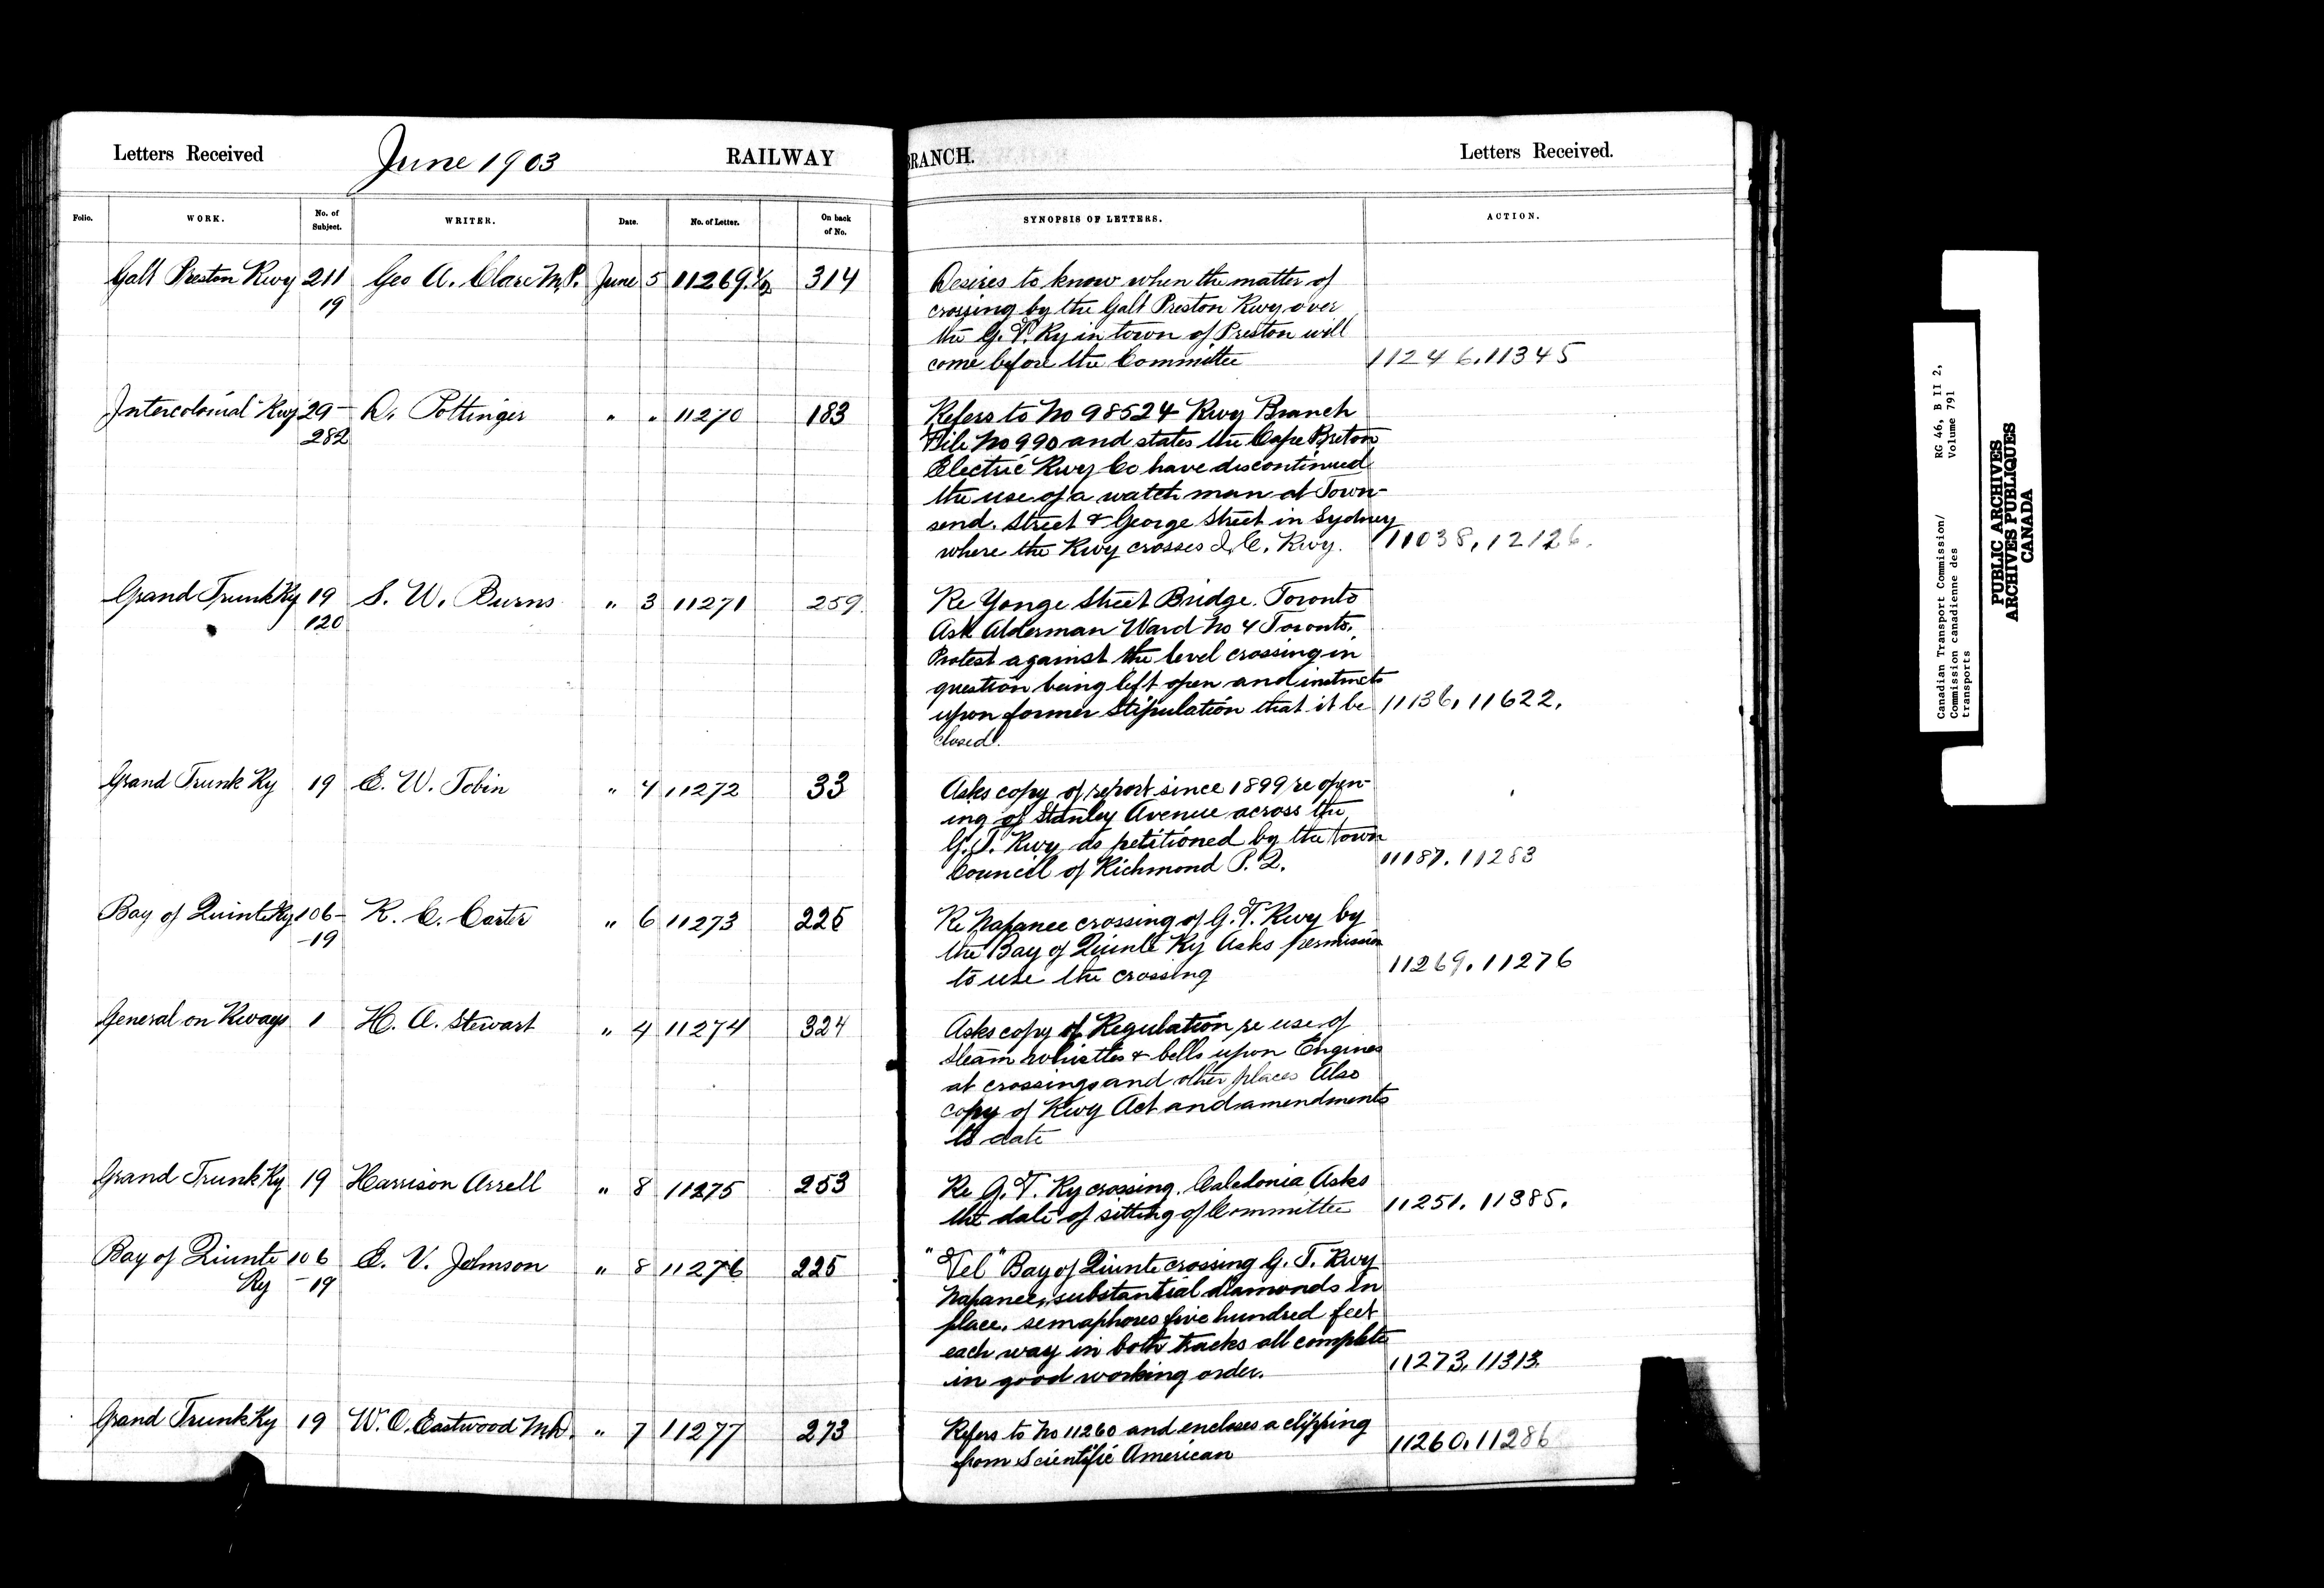 Letters Received June 1903 RAILWAY BRANCH. Letters Received.
Folio. WORK. No. of Subject. WRITER. Date. No. of Letter. On back of No. SYNOPSIS OF LETTERS. ACTION.
Galt Preston Rwy 211 Geo A. Clare M.P. June 5 11269.½ 314 Desires to know when the matter of
19 crossing by the Galt Preston Rwy over
the G.T. Ry in town of Preston will
come before the Committee 11246.11345
Intercolonial Rwy 29- D. Pottinger " " 11270 183 Refers to No 98524 Rwy Branch
282 File No 990 and states the Cape Breton
Electric Rwy Co have discontinued
the use of a watch man at Town-
send. Street & George Street in Sydney
where the Rwy crosses I.C. Rwy. 11038, 12126.
Grand Trunk Ry 19 S. W. Burns " 3 11271 259 Re Yonge Street Bridge. Toronto
120 Ask Alderman Ward No 4 Toronto.
Protest against the level crossing in
question being left open and instructs
upon former stipulation that it be 11136, 11622.
closed.
Grand Trunk Ry 19 E. W. Tobin " 4 11272 33 Asks copy of report since 1899 re open-
ing of Stanley Avenue across the
G.T. Rwy as petitioned by the town
Council of Richmond P.Q. 11187. 11283
Bay of Quinte Ry 106- R. C. Carter " 6 11273 225 Re Napanee crossing of G.T. Rwy by
-19 the Bay of Quinte Ry Asks permission
to use the crossing 11269. 11276
General on Rways 1 H. A. Stewart " 4 11274 324 Asks copy of Regulation re use of
steam whistles & bells upon Engines
at crossings and other places Also
copy of Rwy Act and amendments
to date
Grand Trunk Ry 19 Harrison Arrell " 8 11275 253 Re G.T. Ry crossing. Caledonia Asks
the date of sitting of Committee 11251. 11385.
Bay of Quinte 106 E. V. Johnson " 8 11276 225 "Tel" Bay of Quinte crossing G.T. Rwy
Ry -19 Napanee, substantial diamonds in
place, semaphores five hundred feet
each way in both tracks all complete
in good working order. 11273, 11313.
Grand Trunk Ry 19 W. O. Eastwood M.D. " 7 11277 273 Refers to No 11260 and encloses a clipping
from Scientific American 11260, 11286
RG 46, B II 2,
Volume 791
Canadian Transport Commission/
Commission canadienne des
transports
PUBLIC ARCHIVES
ARCHIVES PUBLIQUES
CANADA